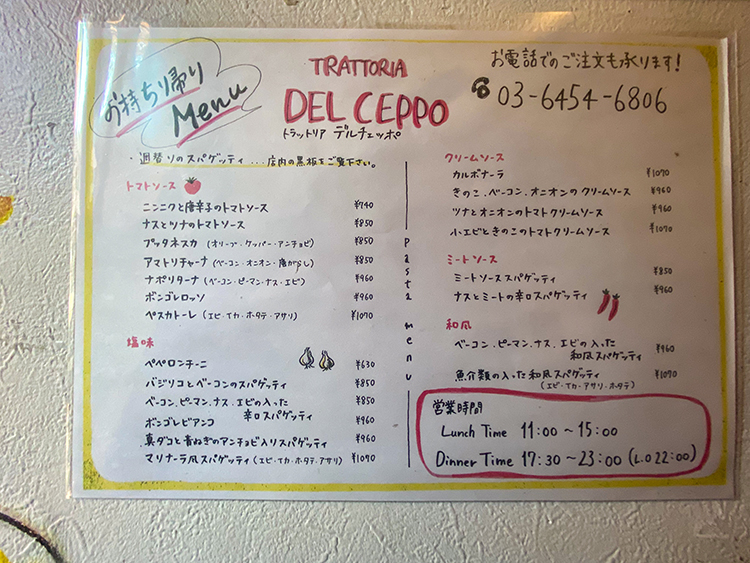 お持ち帰り
Menu
TRATTORIA
DEL CEPPO
トラットリア デルチェッポ
お電話でのご注文も承ります!
☎ 03-6454-6806
・週替りのスパゲッティ...店内の黒板をご覧下さい。
トマトソース
ニンニクと唐辛子のトマトソース ¥740
ナスとツナのトマトソース ¥850
プッタネスカ (オリーブ・ケッパー・アンチョビ) ¥850
アマトリチャーナ (ベーコン・オニオン・唐がらし) ¥850
ナポリターナ (ベーコン・ピーマン・ナス・エビ) ¥960
ボンゴレロッソ ¥960
ペスカトーレ (エビ・イカ・ホタテ・アサリ) ¥1070
塩味
ペペロンチーニ ¥630
バジリコとベーコンのスパゲッティ ¥850
ベーコン、ピーマン、ナス、エビの入った
辛口スパゲッティ ¥850
ボンゴレビアンコ ¥960
真ダコと青ねぎのアンチョビ入りスパゲッティ ¥960
マリナーラ風スパゲッティ (エビ・イカ・ホタテ・アサリ) ¥1070
Pasta menu
クリームソース
カルボナーラ ¥1070
きのこ、ベーコン、オニオンのクリームソース ¥960
ツナとオニオンのトマトクリームソース ¥960
小エビときのこのトマトクリームソース ¥1070
ミートソース
ミートソーススパゲッティ ¥850
ナスとミートの辛口スパゲッティ ¥960
和風
ベーコン、ピーマン、ナス、エビの入った
和風スパゲッティ ¥960
魚介類の入った和風スパゲッティ ¥1070
(エビ・イカ・アサリ・ホタテ)
営業時間
Lunch Time 11:00 ~ 15:00
Dinner Time 17:30 ~ 23:00 (L.O 22:00)